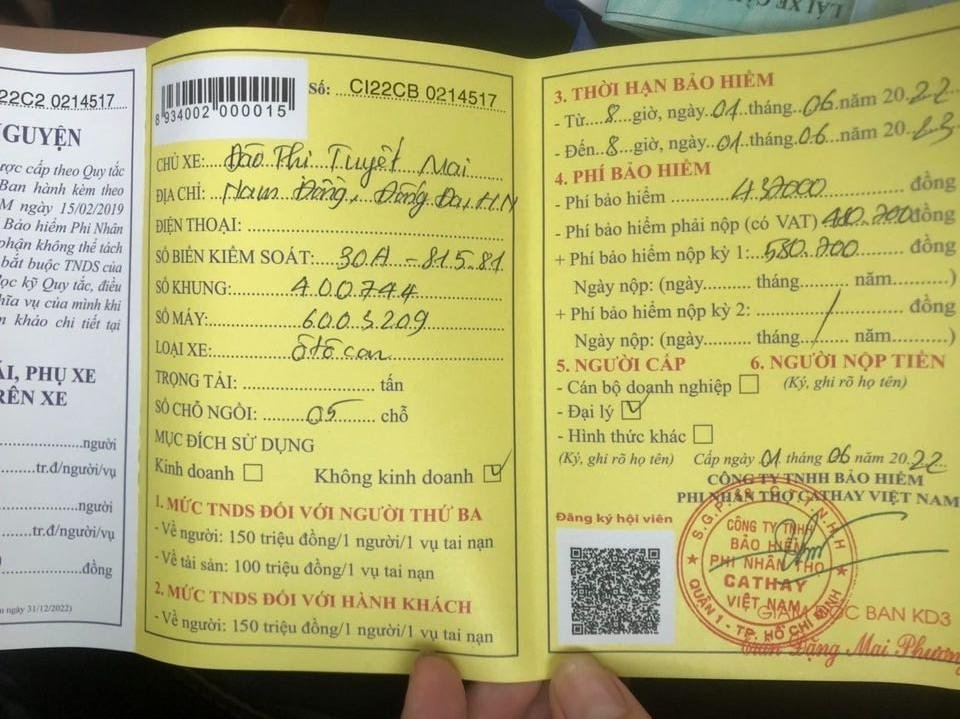 LÁI XE
22C2 0214517
NGUYỆN
ược cấp theo Quy tắc
Ban hành kèm theo
M ngày 15/02/2019
Bảo hiểm Phi Nhân
phận không thể tách
bắt buộc TNDS của
đọc kỹ Quy tắc, điều
hĩa vụ của mình khi
m khảo chi tiết tại
ÁI, PHỤ XE
RÊN XE
người
tr.đ/người/vụ
người
tr.đ/người/vụ
đồng
ngày 31/12/2022)
8 934002 000015
Số: CI22CB 0214517
CHỦ XE: Đào Thị Tuyết Mai
ĐỊA CHỈ: Nam Đồng, Đống Đa, HN
ĐIỆN THOẠI:
SỐ BIỂN KIỂM SOÁT: 30A - 815.81
SỐ KHUNG: 400744
SỐ MÁY: 6003209
LOẠI XE: Ôtô con
TRỌNG TẢI: tấn
SỐ CHỖ NGỒI: 05 chỗ
MỤC ĐÍCH SỬ DỤNG
Kinh doanh Không kinh doanh
1. MỨC TNDS ĐỐI VỚI NGƯỜI THỨ BA
- Về người: 150 triệu đồng/1 người/1 vụ tai nạn
- Về tài sản: 100 triệu đồng/1 vụ tai nạn
2. MỨC TNDS ĐỐI VỚI HÀNH KHÁCH
- Về người: 150 triệu đồng/1 người/1 vụ tai nạn
3. THỜI HẠN BẢO HIỂM
- Từ 8 giờ, ngày 01 tháng 06 năm 2022
- Đến 8 giờ, ngày 01 tháng 06 năm 2023
4. PHÍ BẢO HIỂM
- Phí bảo hiểm 437000 đồng
- Phí bảo hiểm phải nộp (có VAT) 480.700 đồng
+ Phí bảo hiểm nộp kỳ 1: 580.700 đồng
Ngày nộp: (ngày......... tháng......... năm.........)
+ Phí bảo hiểm nộp kỳ 2: đồng
Ngày nộp: (ngày......... tháng......... năm.........)
5. NGƯỜI CẤP 6. NGƯỜI NỘP TIỀN
- Cán bộ doanh nghiệp (Ký, ghi rõ họ tên)
- Đại lý
- Hình thức khác
(Ký, ghi rõ họ tên) Cấp ngày 01 tháng 06 năm 2022
CÔNG TY TNHH BẢO HIỂM
PHI NHÂN THỌ CATHAY VIỆT NAM
Đăng ký hội viên
CÔNG TY TNHH
BẢO HIỂM
PHI NHÂN THỌ
CATHAY
VIỆT NAM
QUẬN 1 - TP. HỒ CHÍ MINH
GIÁM ĐỐC BAN KD3
Trần Đặng Mai Phương